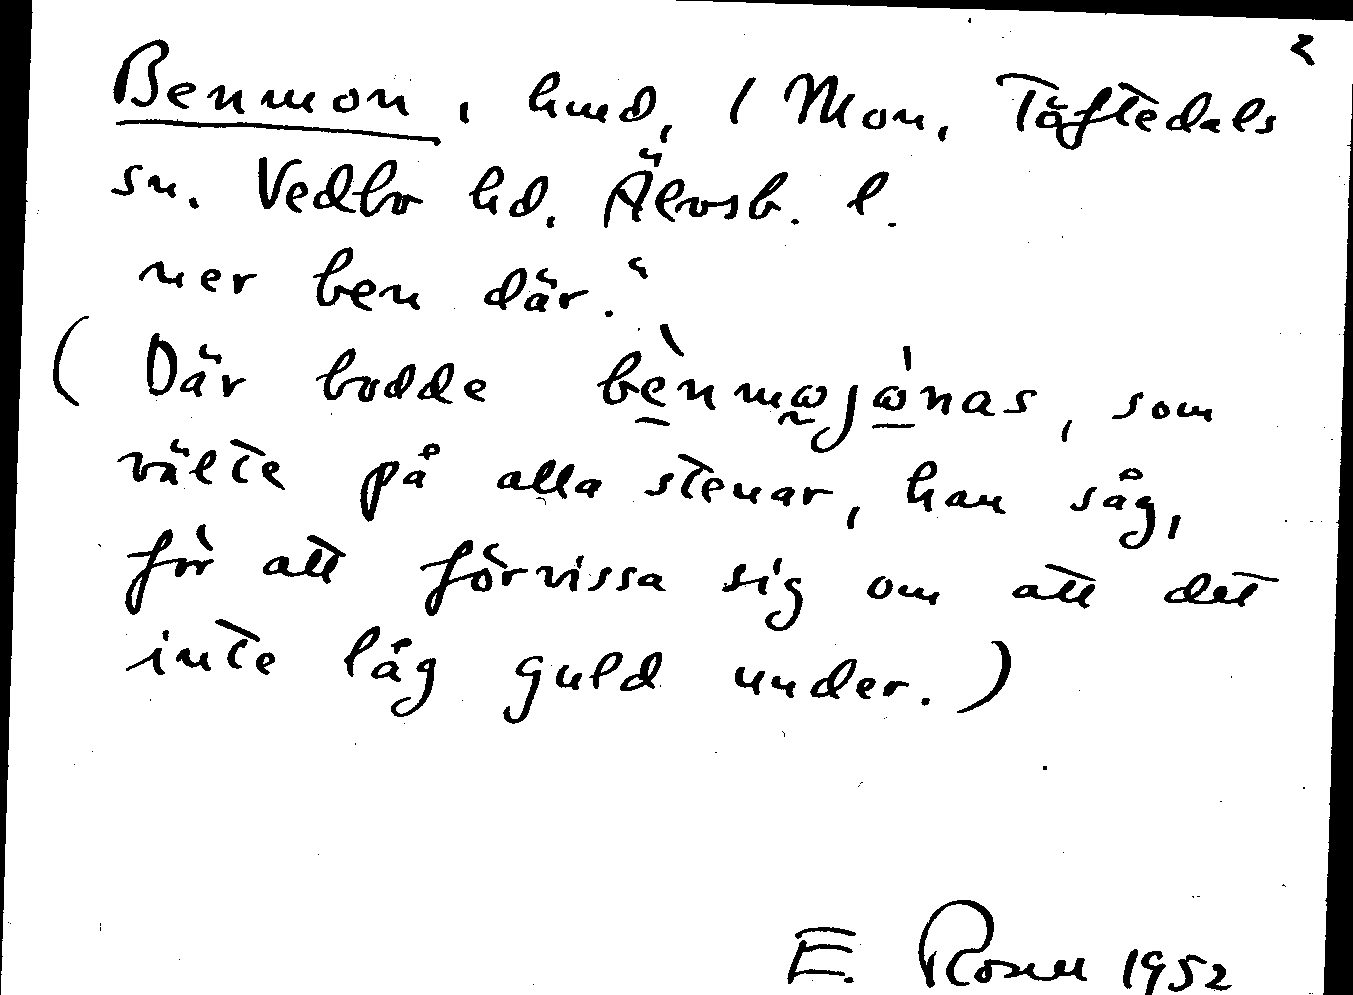 2
Benmon, hmd, / Mon, Töftedals
sn. Vedbo hd. Älvsb. l.
ner ben där."
(Där bodde bènmωjώnas, som
välte på alla stenar, han såg,
för att förvissa sig om att det
inte låg guld under.)
E. Rosen 1952